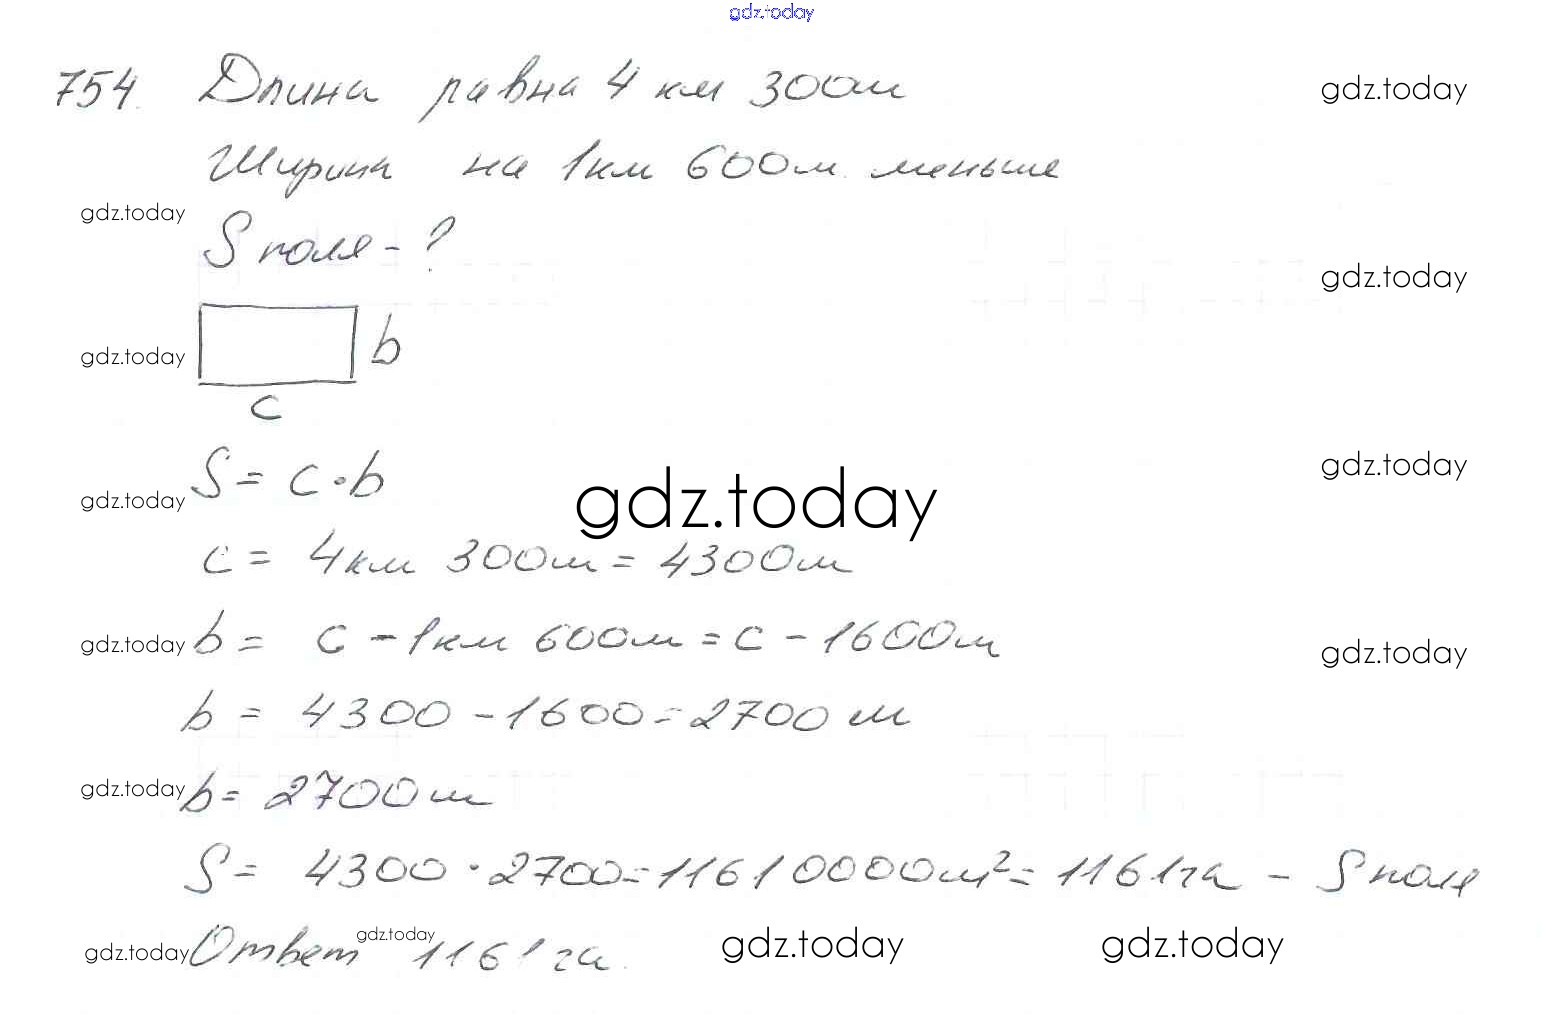 gdz.today
754. Длина равна 4 км 300м
gdz.today
Ширина на 1км 600м. меньше
gdz.today
S поля - ?
gdz.today
gdz.today
b
c
gdz.today
S = c·b
gdz.today
gdz.today
c = 4км 300м = 4300м
gdz.today
b = c - 1км 600м = c - 1600м
gdz.today
b = 4300 - 1600 = 2700 м
gdz.today
b = 2700м
S = 4300 · 2700 = 11610000м² = 1161га - S поля
gdz.today
Ответ 1161 га.
gdz.today
gdz.today
gdz.today